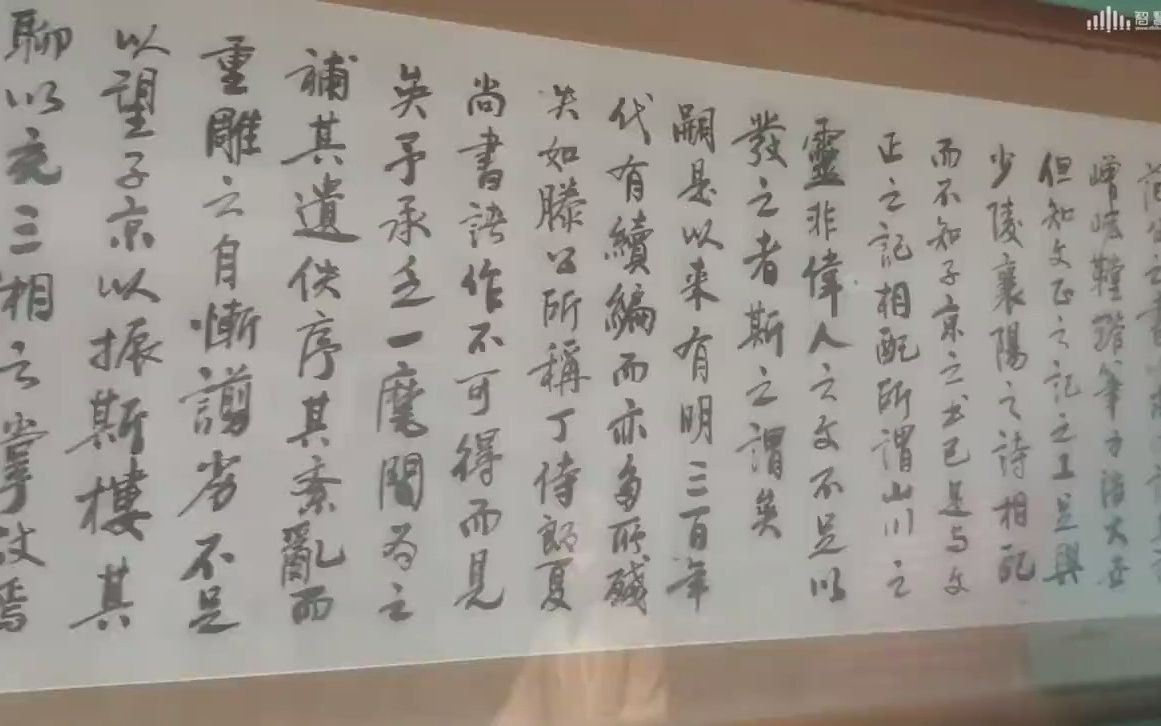 崢嶸鞺鞳筆力浩大
但知文正之記之工足與
少陵襄陽之詩相配
而不知子京之书已足与文
正之記相配所謂山川之
靈非偉人之文不足以
發之者斯之謂矣
嗣是以来有明三百年
代有續編而亦多所殘
失如滕公所稱丁侍郎夏
尚書諸作不可得而見
矣予承乏一麾閒为之
補其遺佚序其紊亂而
重雕之自慚謭劣不足
以望子京以振斯樓其
聊以充三湘之掌故焉
智慧